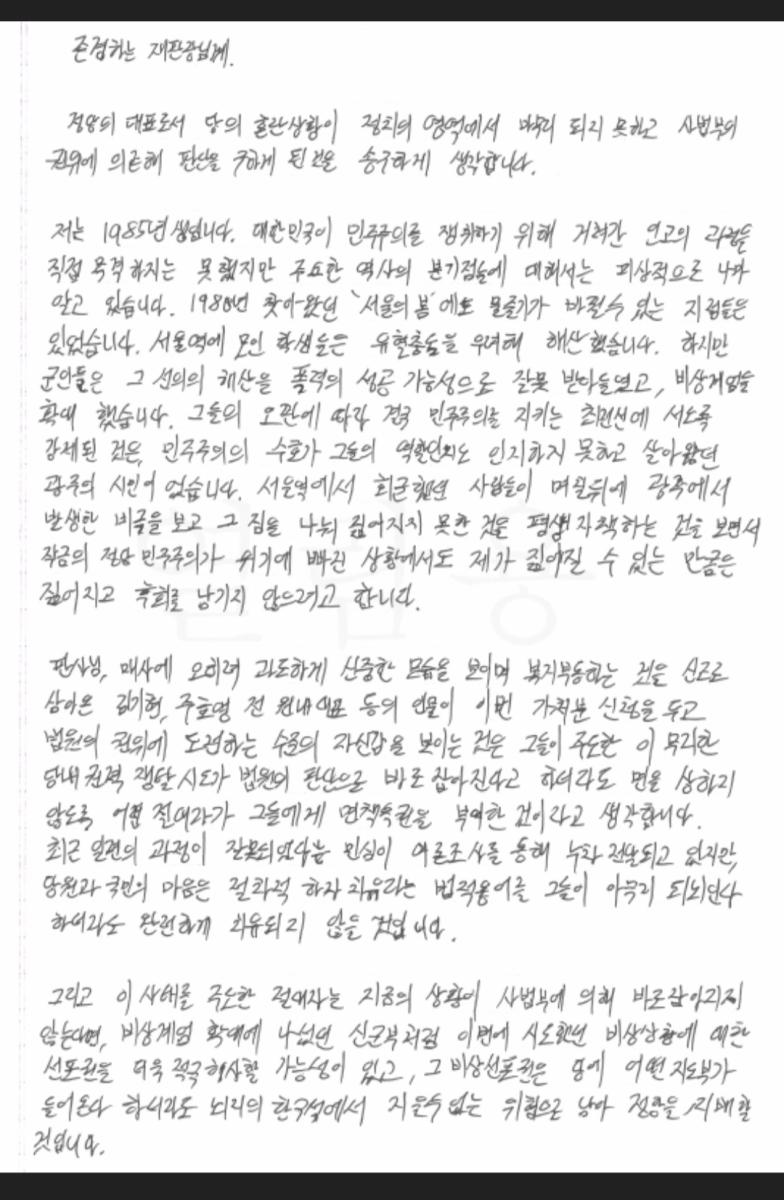 존경하는 재판장님께.
정당의 대표로서 당의 혼란상황이 정치의 영역에서 마무리 되지 못하고 사법부의
권위에 의존해 판단을 구하게 된 것을 송구하게 생각합니다.
저는 1985년생입니다. 대한민국이 민주주의를 쟁취하기 위해 거쳐간 인고의 과정을
직접 목격하지는 못했지만 주요한 역사의 분기점들에 대해서는 피상적으로 나마
알고 있습니다. 1980년 찾아왔던 '서울의 봄'에도 물줄기가 바뀔 수 있는 지점들은
있었습니다. 서울역에 모인 학생들은 유혈충돌을 우려해 해산했습니다. 하지만
군인들은 그 선의의 해산을 폭력의 성공 가능성으로 잘못 받아들였고, 비상계엄을
확대 했습니다. 그들의 오판에 따라 결국 민주주의를 지키는 최전선에 서도록
강제된 것은, 민주주의의 수호가 그들의 역할인지도 인지하지 못하고 살아왔던
광주의 시민이었습니다. 서울역에서 회군했던 사람들이 며칠뒤에 광주에서
발생한 비극을 보고 그 짐을 나눠 짊어지지 못한 것을 평생 자책하는 것을 보면서
작금의 정당 민주주의가 위기에 빠진 상황에서도 제가 짊어질 수 있는 만큼은
짊어지고 후회를 남기지 않으려고 합니다.
판사님, 매사에 오히려 과도하게 신중한 모습을 보이며 복지부동하는 것을 신조로
삼아온 김기현, 주호영 전 원내대표 등의 인물이 이번 가처분 신청을 두고
법원의 권위에 도전하는 수준의 자신감을 보이는 것은 그들이 주도한 이 무리한
당내 권력 쟁탈 시도가 법원의 판단으로 바로 잡아진다고 하더라도 면을 상하지
않도록 어떤 절대자가 그들에게 면책특권을 부여한 것이라고 생각합니다.
최근 일련의 과정이 잘못되었다는 민심이 여론조사를 통해 누차 전달되고 있지만,
당원과 국민의 마음은 절차적 하자 치유라는 법적용어를 그들이 아무리 되뇌인다
하더라도 완전하게 치유되지 않을 것입니다.
그리고 이 사태를 주도한 절대자는 지금의 상황이 사법부에 의해 바로잡아지지
않는다면, 비상계엄 확대에 나섰던 신군부처럼 이번에 시도했던 비상상황에 대한
선포권을 더욱 적극 행사할 가능성이 있고, 그 비상선포권은 당에 어떤 지도부가
들어온다 하더라도 뇌리의 한구석에서 지울수 없는 위협으로 남아 정당을 지배할
것입니다.